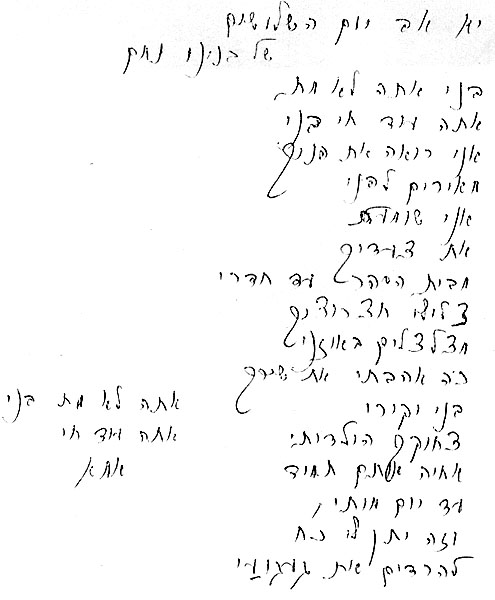 יא אב יום השלושים
של בנינו נחום
בני אתה לא מת
אתה עוד חי בני
אני רואה את הניך
מאירים לפני
אני שומעת
את צעדיך
מבית הסהר עד חדרי
צלילי חצרוצרך
מצלצלים באוזני
כה אהבתי את שירך
בני יקירי
צחוקך הילדותי
אחיה אתם תמיד
עד יום מותי
וזה יתן לי כח
להרדים את געגועי
אתה לא מת בני
אתה עוד חי
אמא